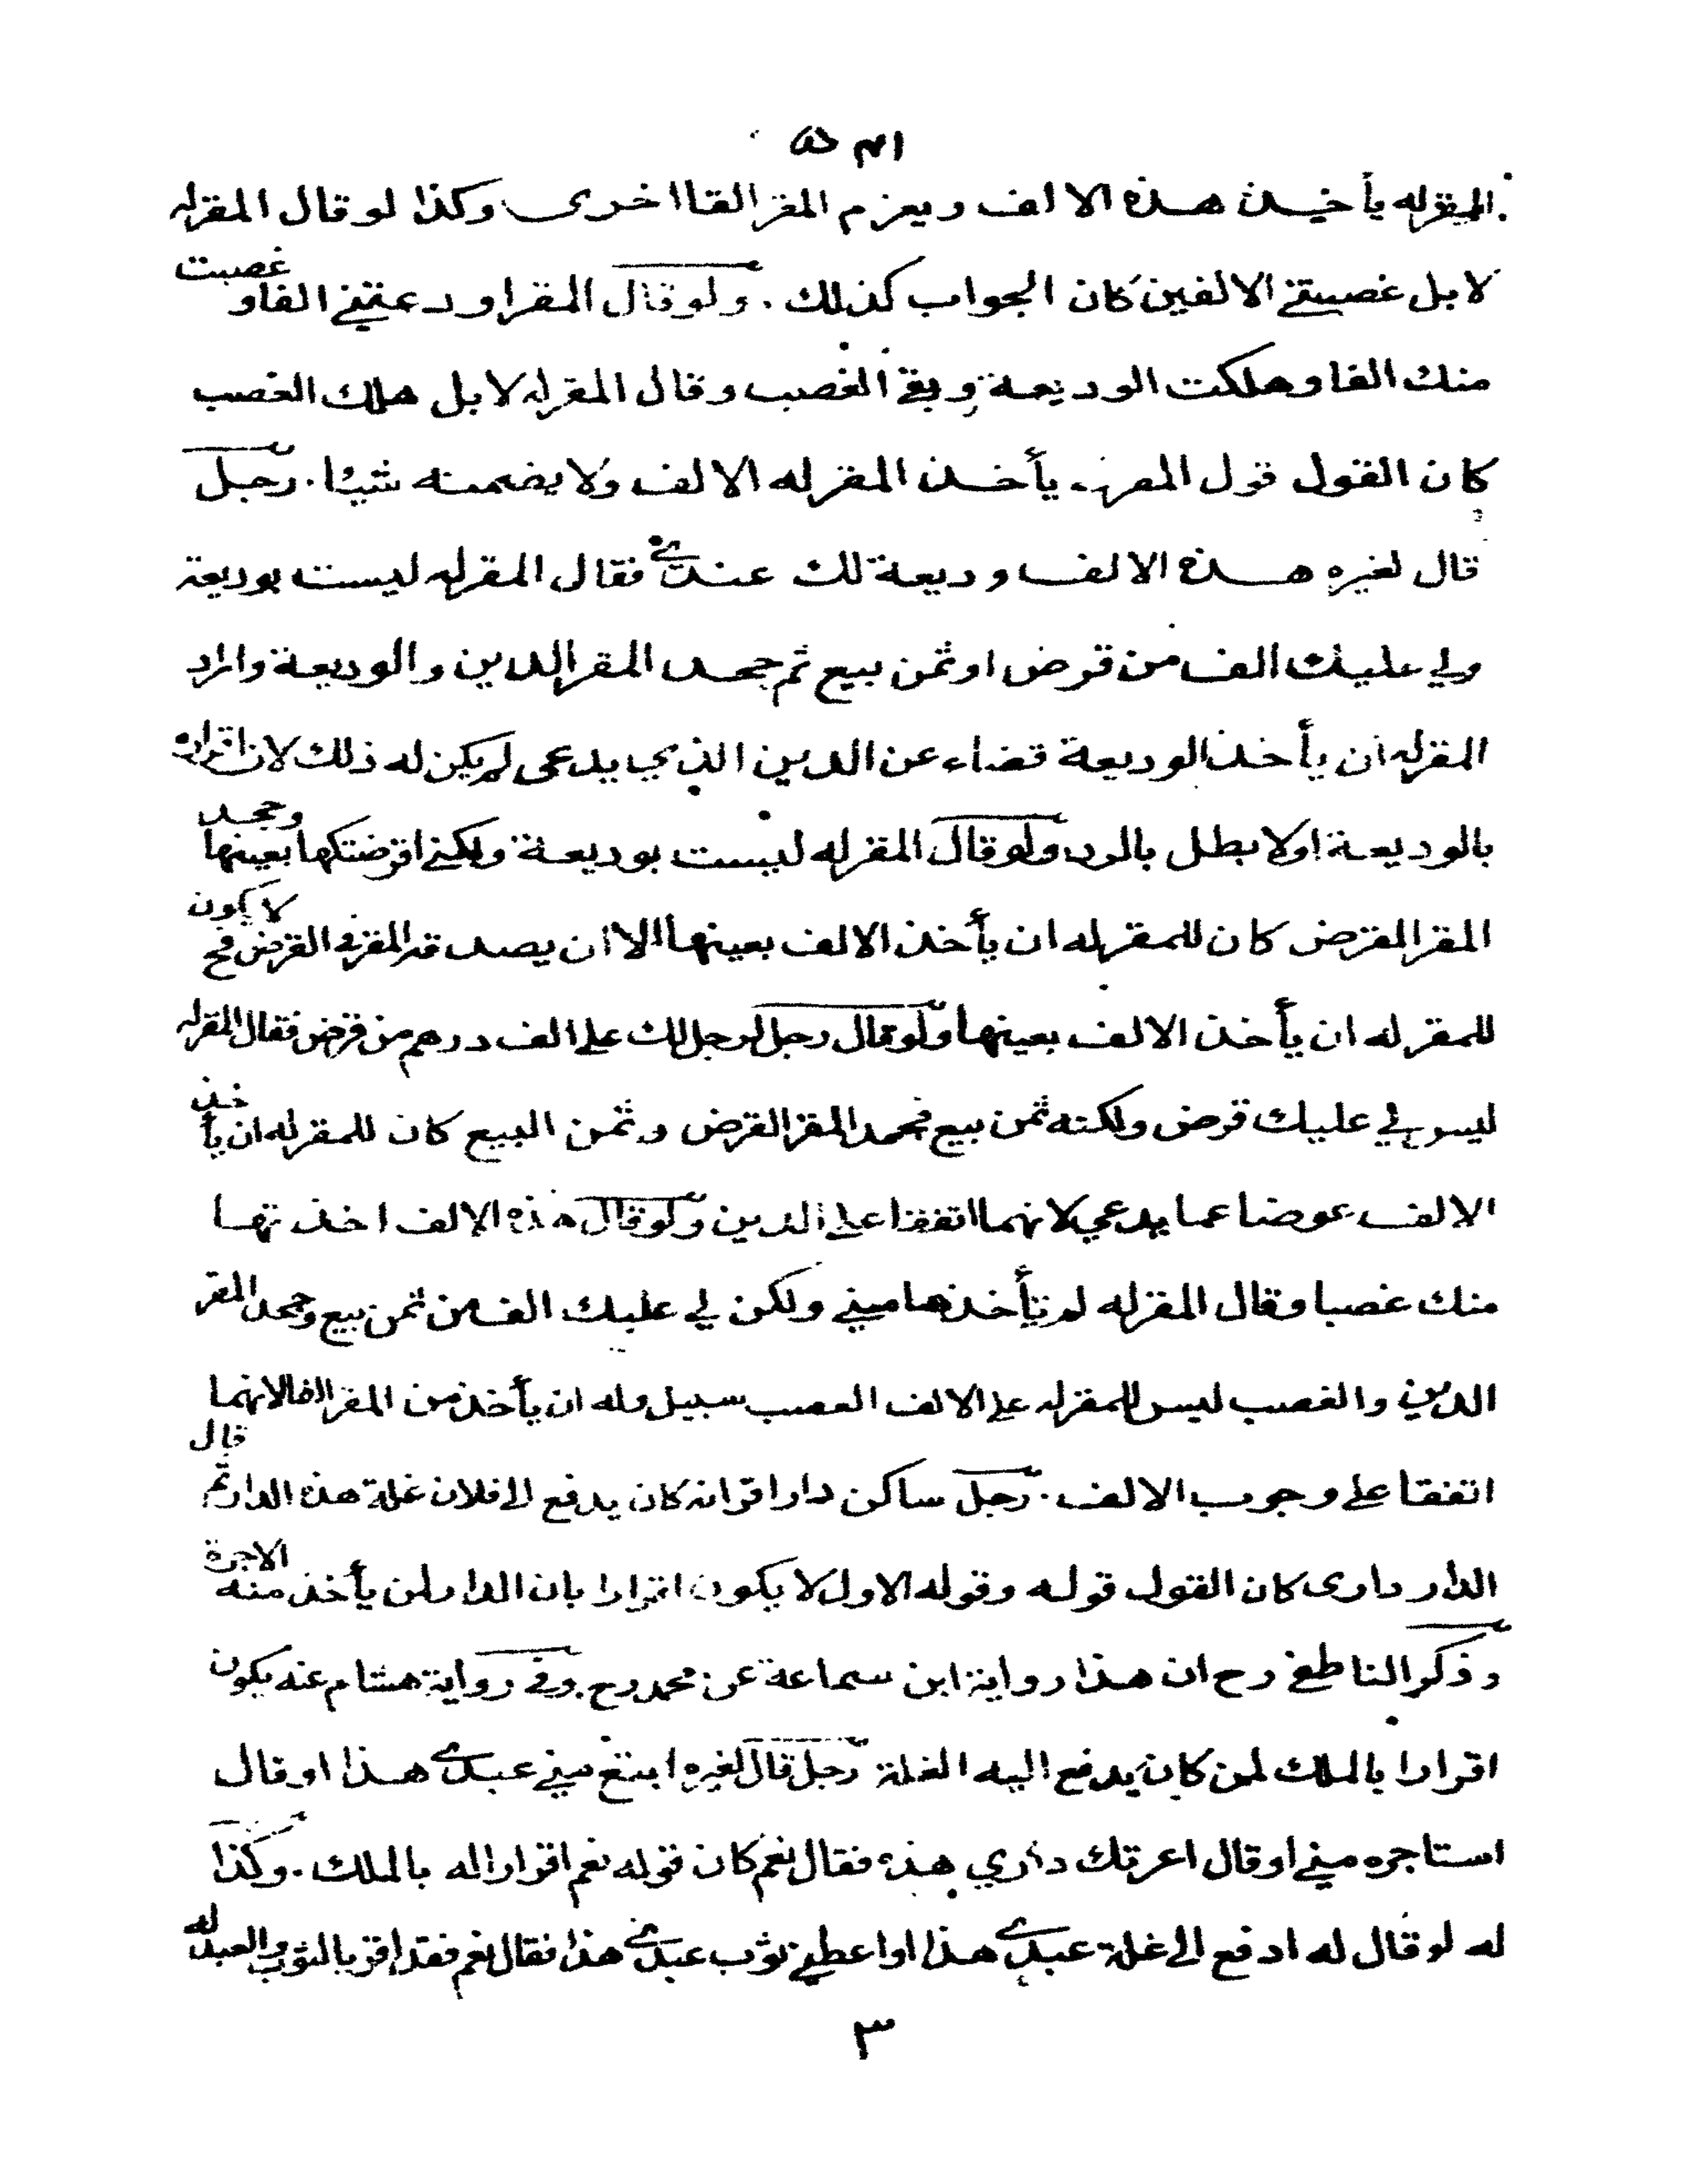 المقرله يأخذ هذه الالف ويغرم المقر الفا اخرى وكذا لو قال المقرله
لا بل غصبتني الالفين كان الجواب كذلك . ولو قال المقر اودعتني الفا وغصبت
منك الفا وهلكت الوديعة وبقي الغصب وقال المقرله لا بل هلك الغصب
كان القول قول المقرله يأخذ المقرله الالف ولا يضمنه شيئا . رجل
قال لغيره هذه الالف وديعة لك عندي فقال المقرله ليست بوديعة
ولي عليك الف من قرض او ثمن بيع ثم جحد المقر الدين والوديعة واراد
المقرله ان يأخذ الوديعة قضاء عن الدين الذي يدعى لم يكن له ذلك لان اقراره
بالوديعة اولا بطل بالرد ولو قال المقرله ليست بوديعة ولكني اقرضتكها بعينها وجحد
المقر القرض كان للمقرله ان يأخذ الالف بعينها الا ان يصدقه المقر في القرض فح لا يكون
للمقرله ان يأخذ الالف بعينها ولو قال رجل لرجل لك علي الف درهم من قرض فقال المقرله
ليس لي عليك قرض ولكنه ثمن بيع فجحد المقر القرض وثمن البيع كان للمقرله ان يأخذ
الالف عوضا عما يدعي لانهما اتفقا على الدين ولو قال هذه الالف اخذتها
منك غصبا وقال المقرله لم تأخذها مني ولكن لي عليك الف من ثمن بيع وجحد المقر
الدين والغصب ليس للمقرله على الالف الغصب سبيل وله ان يأخذ من المقر الفا لانهما
اتفقا على وجوب الالف . رجل ساكن دار اقر انه كان يدفع الى فلان غلة هذه الدار ثم قال
الدار دارى كان القول قوله وقوله الاول لا يكون اقرارا بان الدار لمن يأخذ منه الاجرة
وذكر الناطفي رح ان هذا رواية ابن سماعة عن محمد رح وفي رواية هشام عنه يكون
اقرارا بالملك لمن كان يدفع اليه الغلة رجل قال لغيره ابتع مني عبدي هذا او قال
استاجره مني او قال اعرتك داري هذه فقال نعم كان قوله نعم اقرارا له بالملك . وكذا
له لو قال له ادفع الي غلة عبدي هذا او اعطني ثوب عبدي هذا فقال نعم فقد اقر بالثوب والعبد له
٣